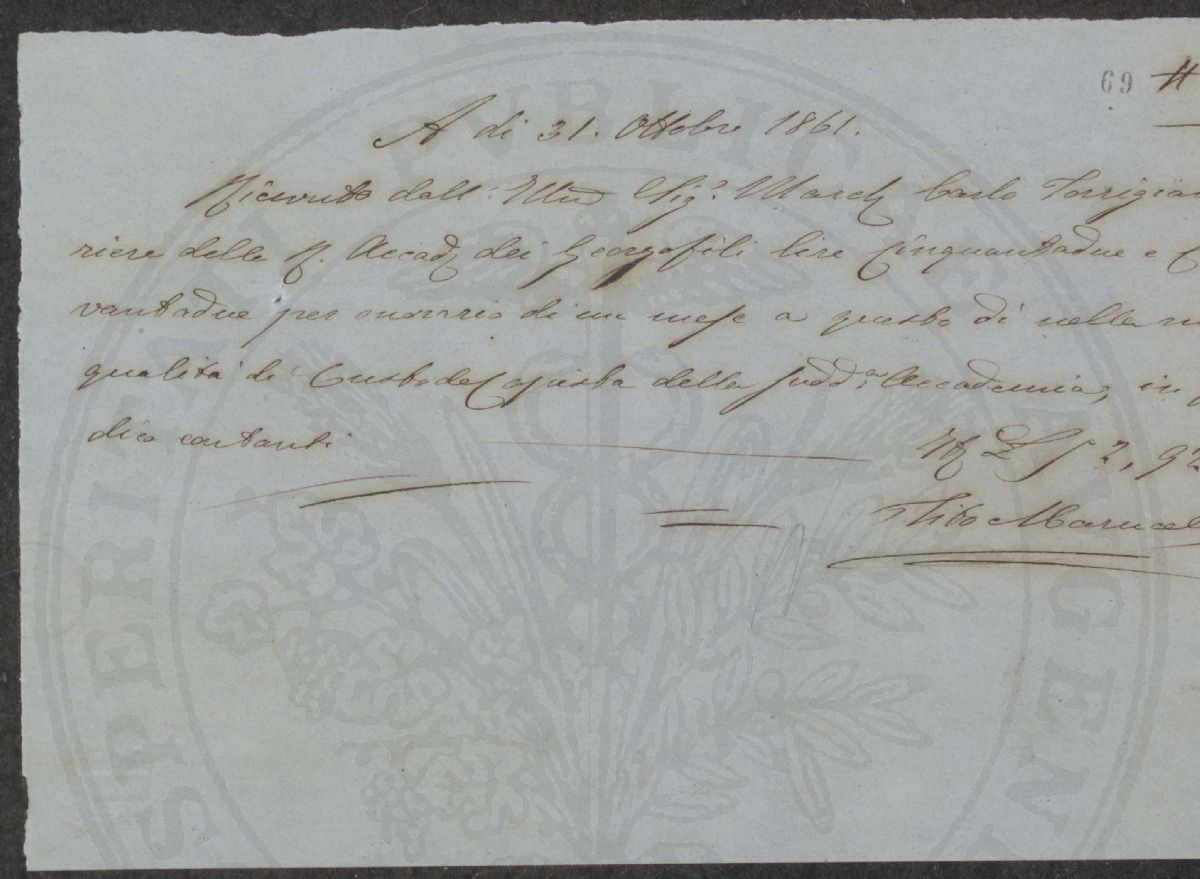 69 #
A di 31. Ottobre 1861.
Ricevuto dall' Illmo Sigr. March Carlo Torrigia
riere della R. Accad dei Georgofili lire Cinquantadue e C
vantadue per onorario di un mese a questo dì nella m
qualità di Custode Copista della sudda. Accademia, in
dico contanti
L 52, 92
Tito Marucel
SPERITATI PVBLICAE AVGEN